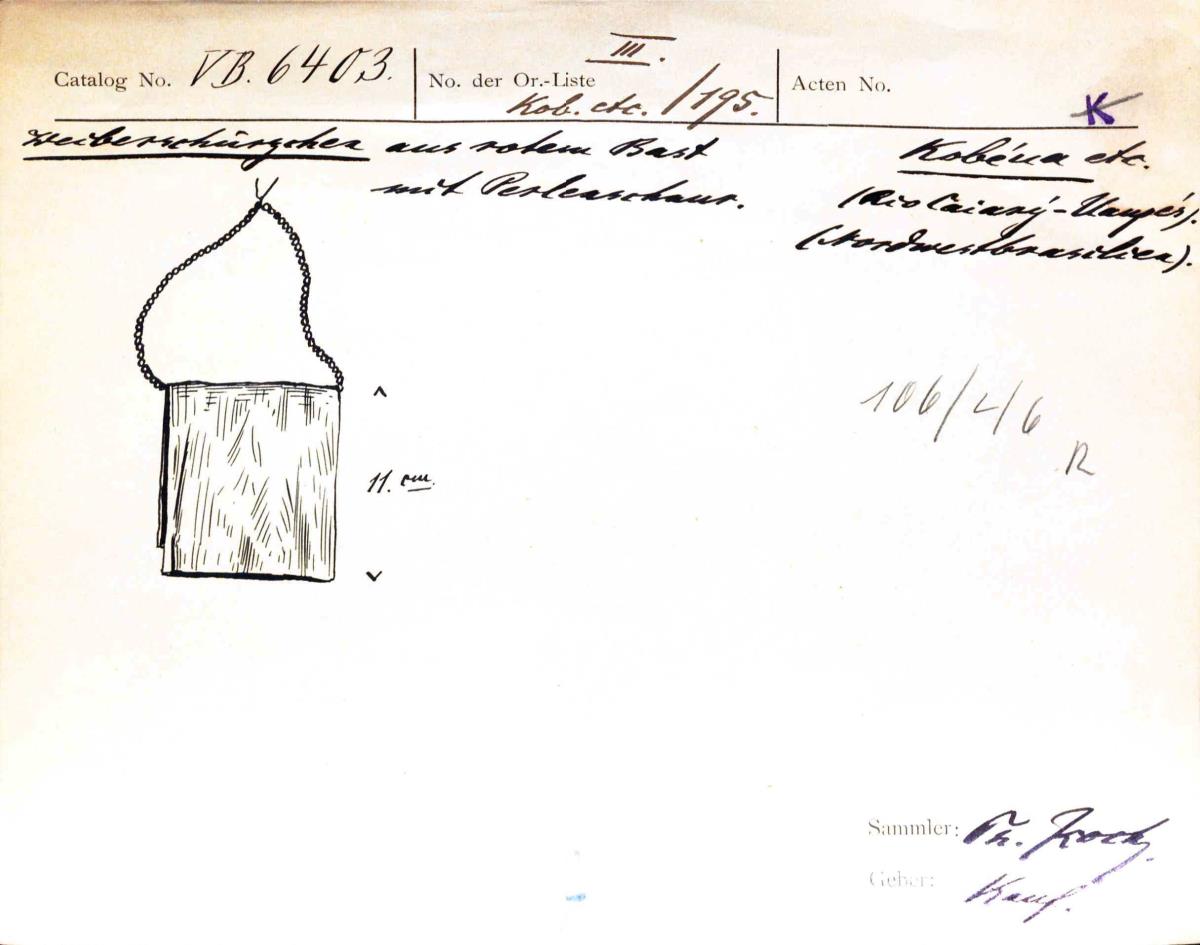 Catalog No. VB. 6403.
No. der Or.-Liste III.
Kob. etc. /195.
Acten No.
K
Weiberschürzchen aus rotem Bast
mit Perlenschnur.
Kobéua etc.
(Rio Caiarý-Uaupés).
(Nordwestbrasilien).
11. cm.
106/4/6
R
Sammler: Th. Koch.
Geber: Kauf.